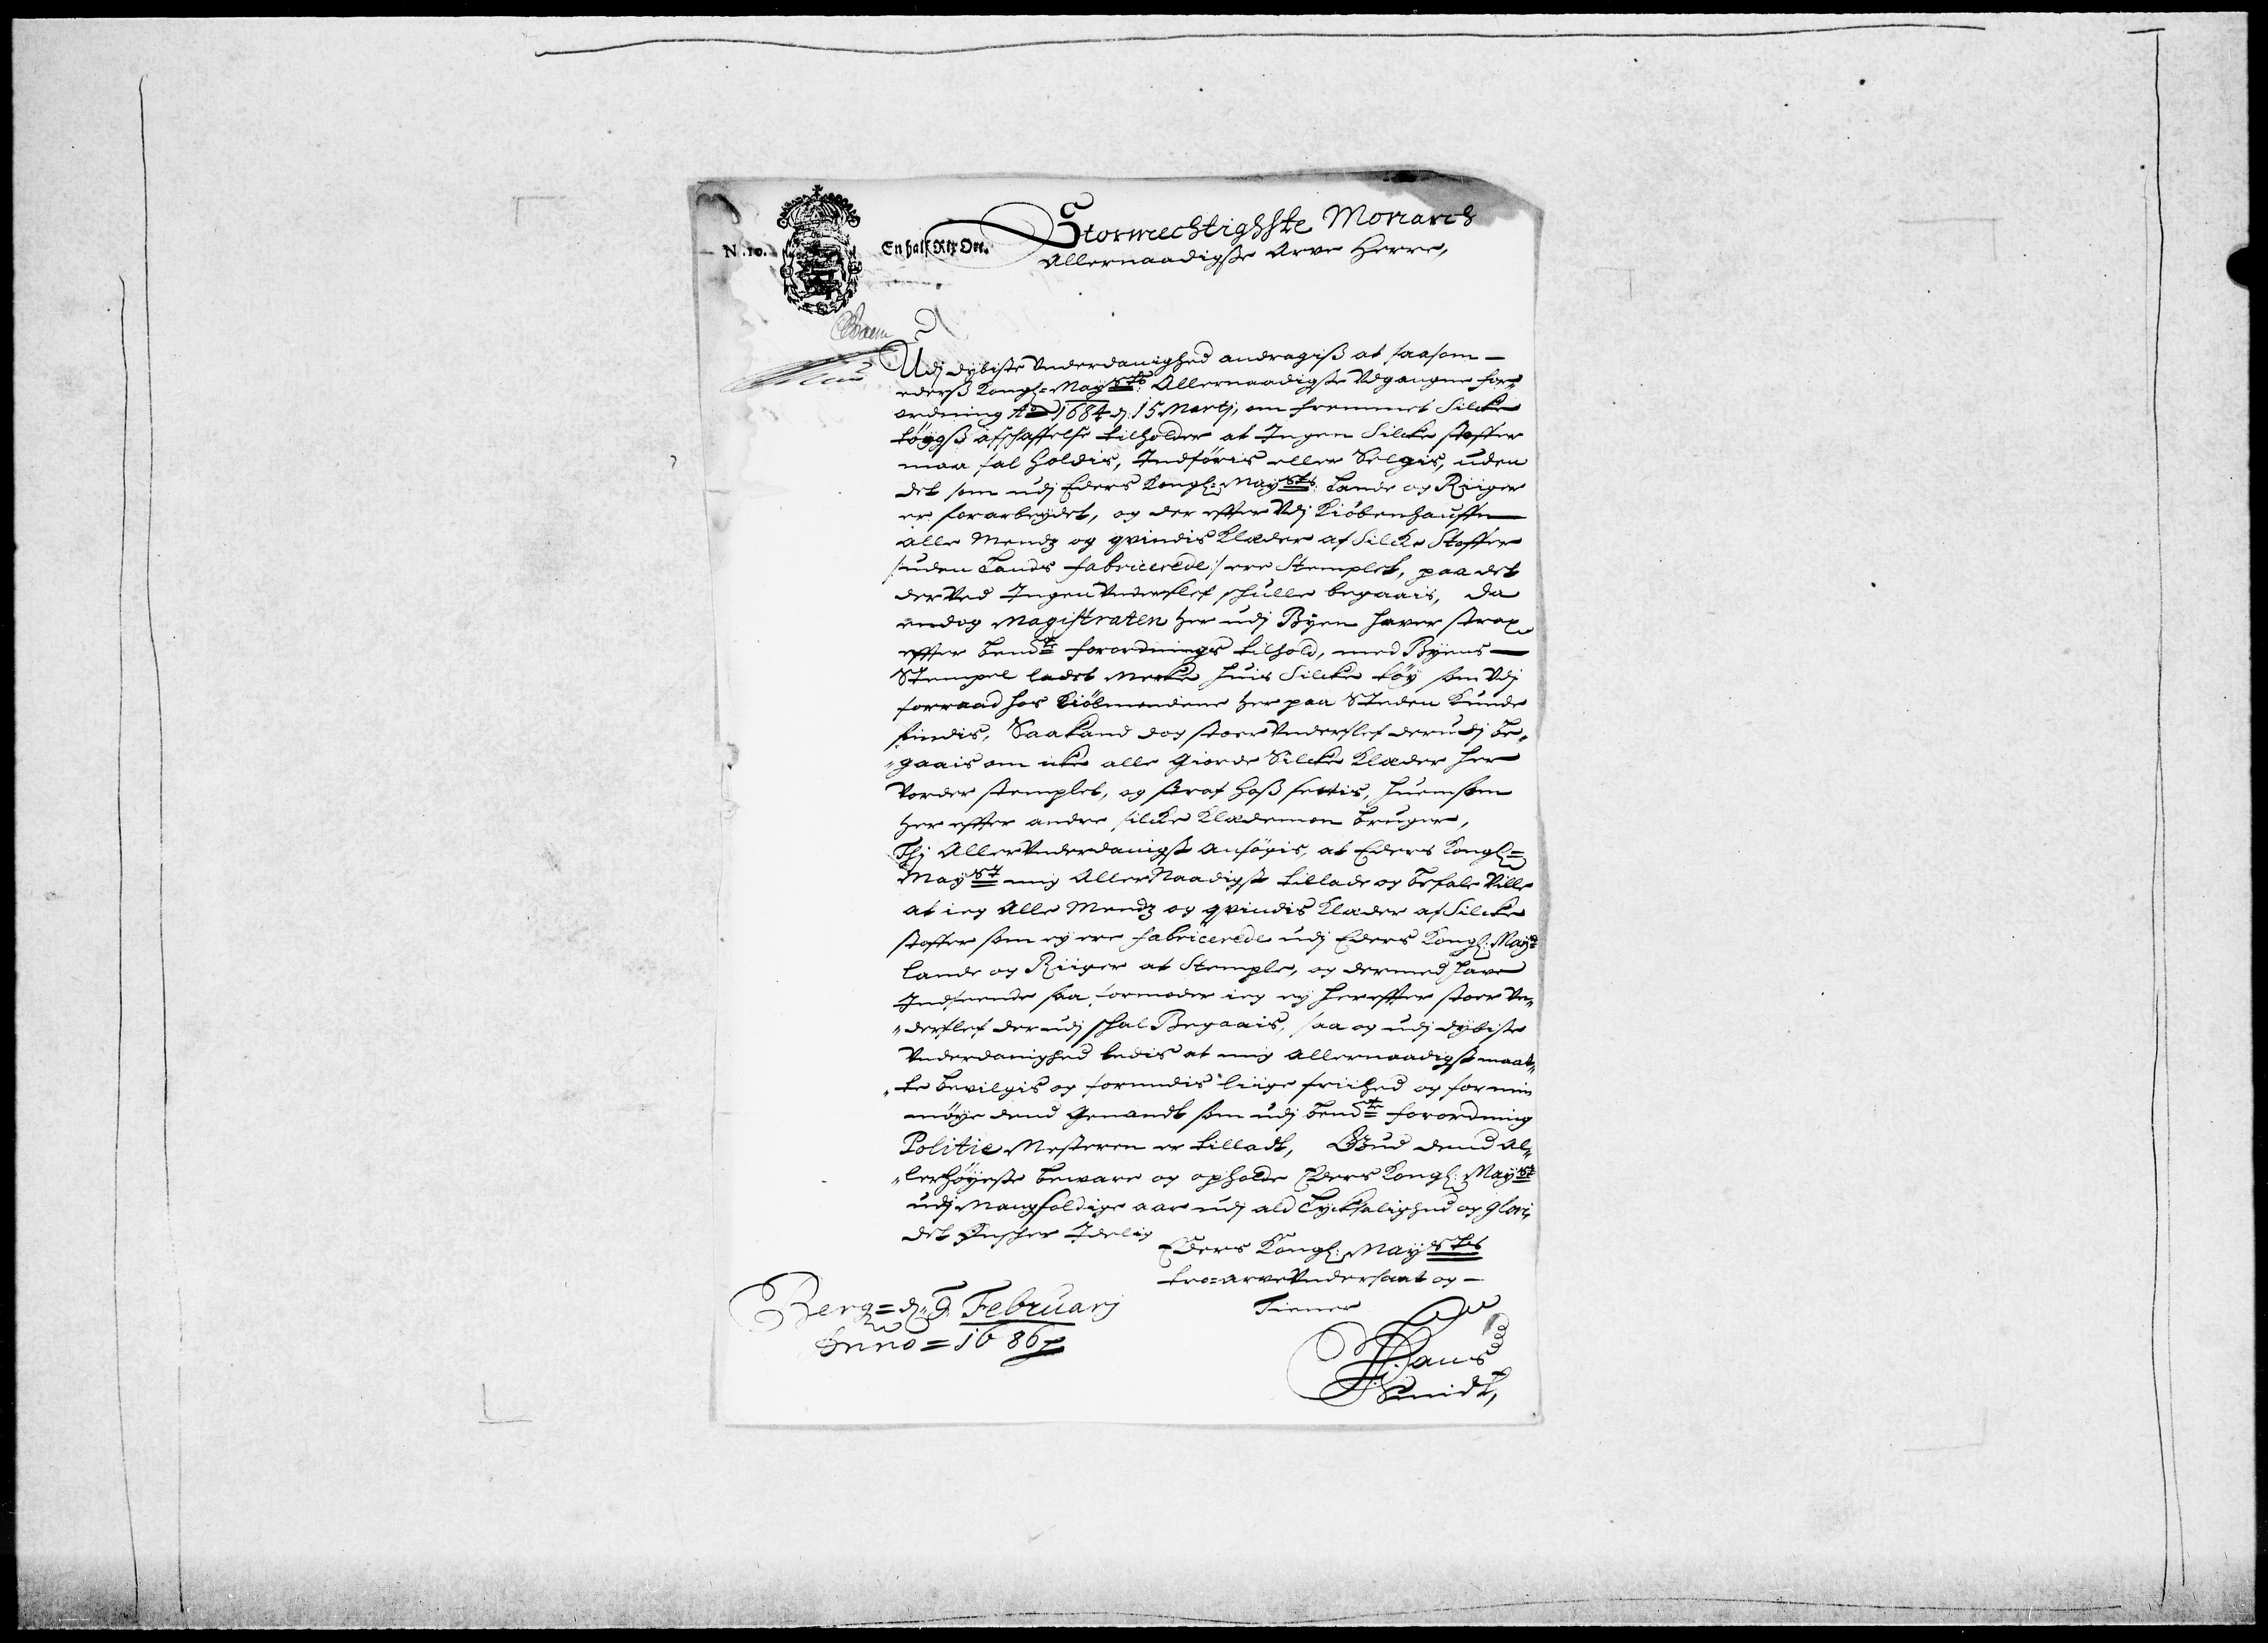 N. 10.
En half Rix Ort.
Stormechtigste Monarch
Allernaadigste Arve Herre,
Udj dybiste Underdanighed andragiß at saasom
ederß Kongl: Mayst: Allernaadigste Udgangne for„
ordning Ao 1684 d: 15 Martj, om fremmet Silcke
tøygß afschaffelse tilholder at Ingen Silcke stoffer
maa fal holdis, Indføris eller Selgis, uden
det som udj Eders Kongl: Maysts: Lande og Riiger
er forarbeydet, og der effter Udj Kiøbenhauffn
alle Mendz og qvindis Klæder af Silcke Stoffer
/: uden Lands fabricerede :/ ere Stemplet, paa det
der Ved Ingen Underslef schulle begaais, da
endog Magistraten her udj Byen haver strax
effter bemte forordnings tilhold, med Byens
Stempel ladet Merke huis Silcke tøy som Udj
forraad hos Kiøbmendene her paa Steden kunde
findis, Saa kand dog stoer Underslef derudj be„
„gaais om icke alle giorde Silcke Klæder her
Vorder stemplet, og straf hoß settis, huemsom
her effter andre silcke Klædemon bruger,
Thj Aller Underdanigst ansøgis, at Eders Kongl=
Mayst mig Aller Naadigst tillade og befale Ville
at ieg Alle Mendz og qvindis Klæder af Silcke
stoffer som ey ere fabricerede udj Eders Kongl: Mayts
Lande og Riiger at Stemple, og dermed have
Indseende saa formoder ieg ey hereffter stoer Un„
„derslef der udj schal Begaais, saa og udj dybiste
Underdanighed bedis at mig allernaadigst maat„
„te bevilgis og forundis liige friihed og for min
møye dend genandt som udj bemte forordning
Politie Mesteren er tilladt, Gud dend Al„
„lerhøyeste bevare og opholde Eders Kongl: Mayst
udj Mangfoldige aar udj ald Lycksalighed og glori,
det ønscher Idelig
Eders Kongl: Maysts
tro= arve Undersaat og
Tiener
Berg= d: 9 Februarj
Anno = 1686
Hans
Smidt,